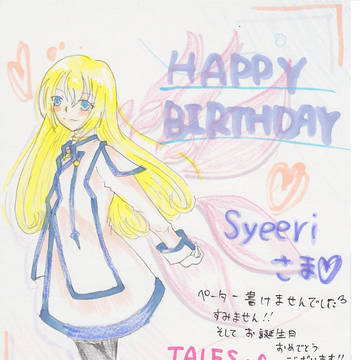 HAPPY
BIRTHDAY
Syeeri
さま♡
ペーター書けませんでしたう
すみません!!
そして お誕生日
おめでとう
ございます!!
TALES